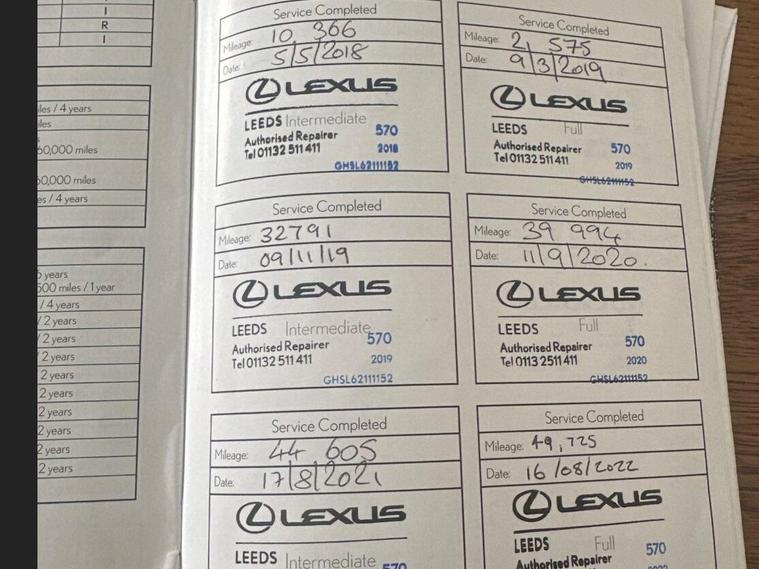 I
R
I
les / 4 years
les
60,000 miles
60,000 miles
es / 4 years
years
500 miles / 1 year
/ 4 years
/ 2 years
/ 2 years
2 years
2 years
2 years
2 years
2 years
2 years
2 years
Service Completed
Mileage: 10 366
Date: 5/5/2018
LEXUS
LEEDS Intermediate
Authorised Repairer 570
Tel 01132 511 411 2018
GHSL62111152
Service Completed
Mileage: 21 575
Date: 9/3/2019
LEXUS
LEEDS Full
Authorised Repairer 570
Tel 01132 511411 2019
GHSL62111152
Service Completed
Mileage: 32791
Date: 09/11/19
LEXUS
LEEDS Intermediate
Authorised Repairer 570
Tel 01132 511 411 2019
GHSL62111152
Service Completed
Mileage: 39 994
Date: 11/9/2020.
LEXUS
LEEDS Full
Authorised Repairer 570
Tel 0113 2511 411 2020
GHSL62111152
Service Completed
Mileage: 44 605
Date: 17/8/2021
LEXUS
LEEDS Intermediate
570
Service Completed
Mileage: 49,725
Date: 16/08/2022
LEXUS
LEEDS Full
Authorised Repairer 570